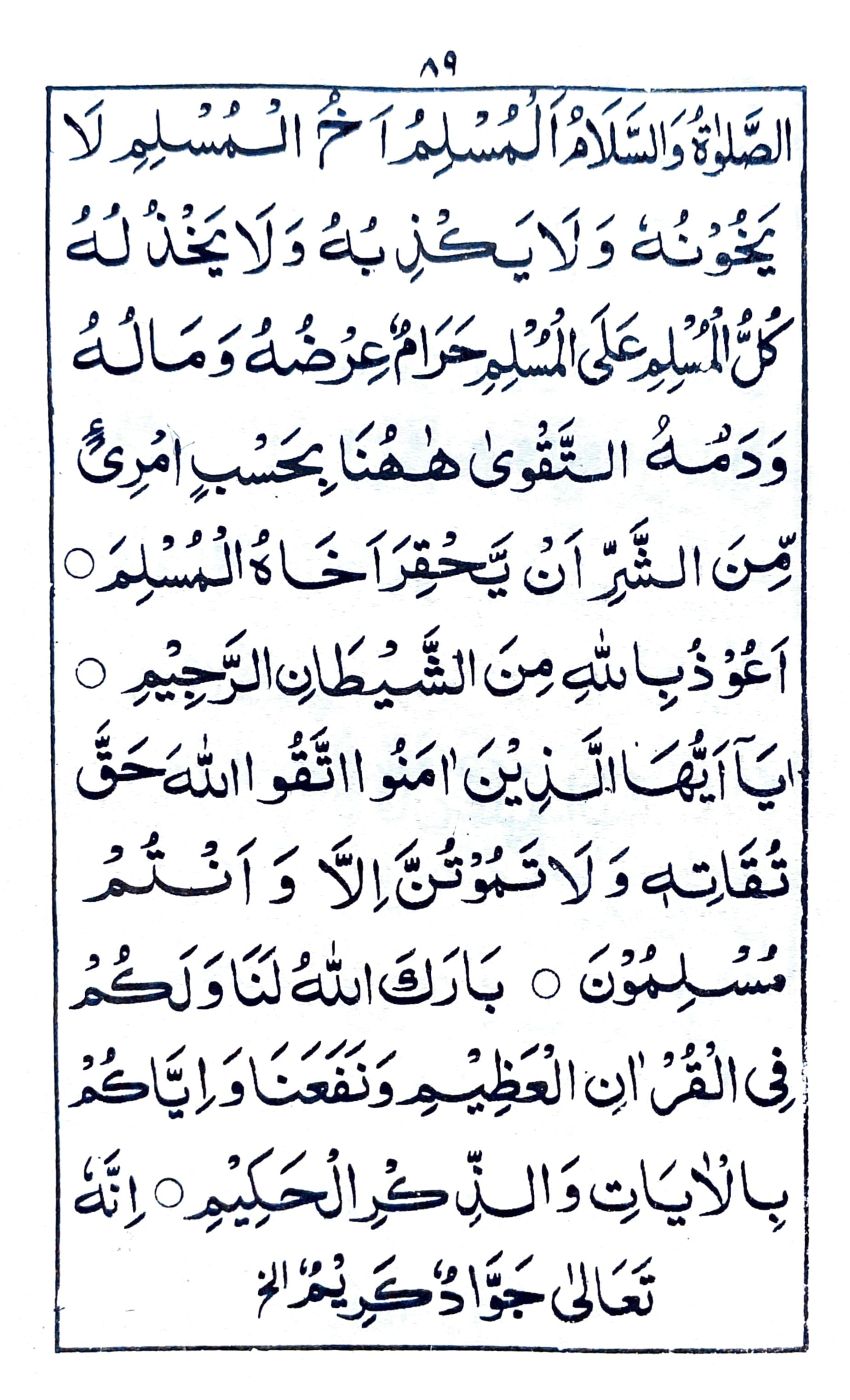 ٨٩
الصَّلٰوةُ وَالسَّلَامُ اَلْمُسْلِمُ اَخُ الْمُسْلِمِ لَا
يَخُوْنُهٗ وَلَا يَكْذِبُهُ وَلَا يَخْذُلُهُ
كُلُّ الْمُسْلِمِ عَلَى الْمُسْلِمِ حَرَامٌ عِرْضُهُ وَمَالُهُ
وَدَمُهُ التَّقْوىٰ هٰهُنَا بِحَسْبِ امْرِئٍ
مِّنَ الشَّرِّ اَنْ يَّحْقِرَ اَخَاهُ الْمُسْلِمَ ○
اَعُوْذُ بِاللهِ مِنَ الشَّيْطَانِ الرَّجِيْمِ ○
يَآ اَيُّهَا الَّذِيْنَ اٰمَنُوا اتَّقُوا اللهَ حَقَّ
تُقَاتِهٖ وَلَا تَمُوْتُنَّ اِلَّا وَاَنْتُمْ
مُسْلِمُوْنَ ○ بَارَكَ اللهُ لَنَا وَلَكُمْ
فِى الْقُرْاٰنِ الْعَظِيْمِ وَنَفَعَنَا وَاِيَّاكُمْ
بِالْاٰيَاتِ وَالذِّكْرِ الْحَكِيْمِ ○ اِنَّهٗ
تَعَالىٰ جَوَّادٌ كَرِيْمٌ الخ